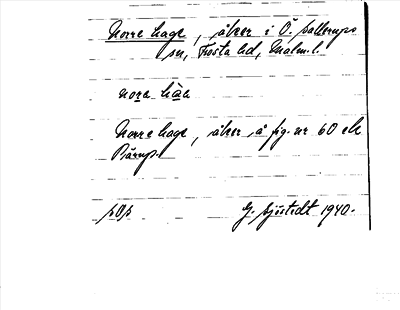 Norre hage, åker i Ö. Sallerups
sn, Frosta hd, Malm. l.
nora hàa
Norre hage, åker å fig. nr 60 ek
Bärup.
pOp G. Sjöstedt 1940.